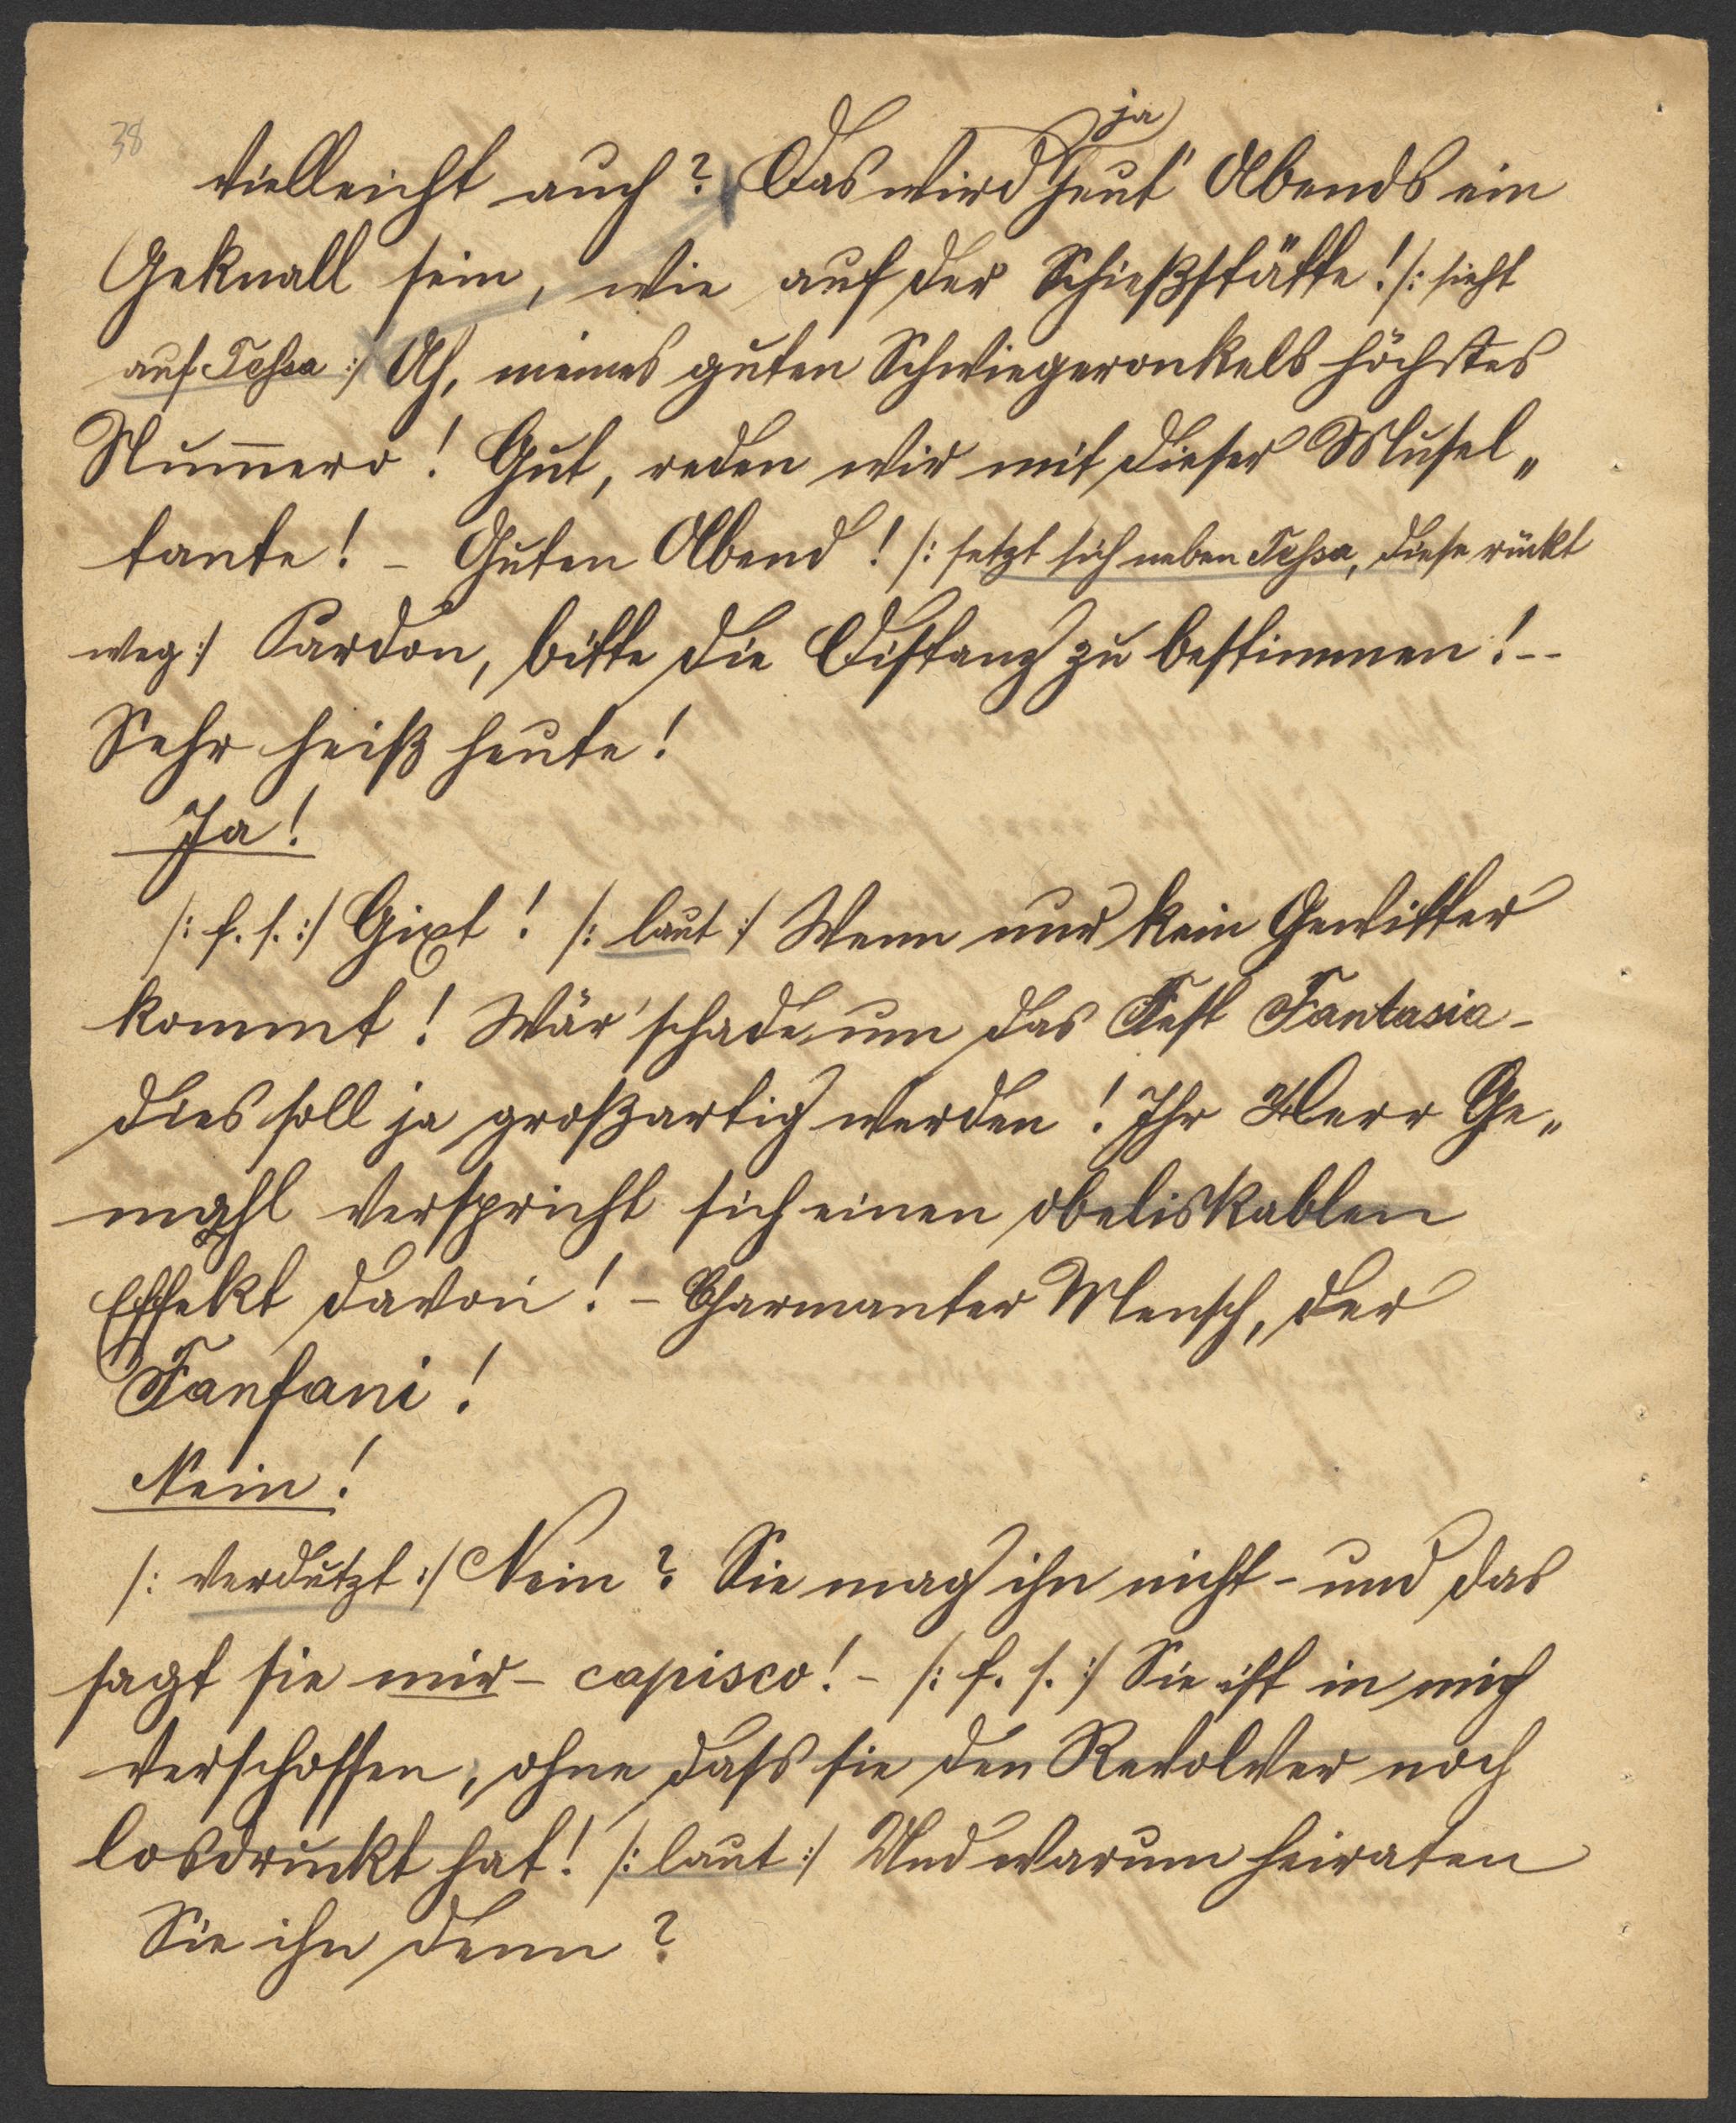 38
ja
vielleicht auch? Das wird heut' Abends ein
Geknall sein, wie auf der Schießstätte! /: sieht
auf Tessa :/ Ah, meines guten Schwiegeronkels höchstes
Num̅ero! Gut, reden wir mit dieser Musel„
tante! – Guten Abend! /: setzt sich neben Tessa, diese rückt
weg :/ Pardon, bitte die Distanz zu bestimmen! --
Sehr heiß heute!
Ja!
/: f. s. :/ Gixt! /: laut :/ Wenn nur kein Gewitter
kommt! Wär' schade um das Fest Fantasia –
dies soll ja großartig werden! Ihr Herr Ge„
mahl verspricht sich einen obeliskablen
Effekt davon! – Charmanter Mensch, der
Fanfani!
Nein!
/: verdutzt :/ Nein? Sie mag ihn nicht – und das
sagt sie mir – capisco! – /: f. s. :/ Sie ist in mich
verschossen, ohne dass sie den Revolver noch
losdruckt hat! /: laut :/ Und warum heiraten
Sie ihn denn?